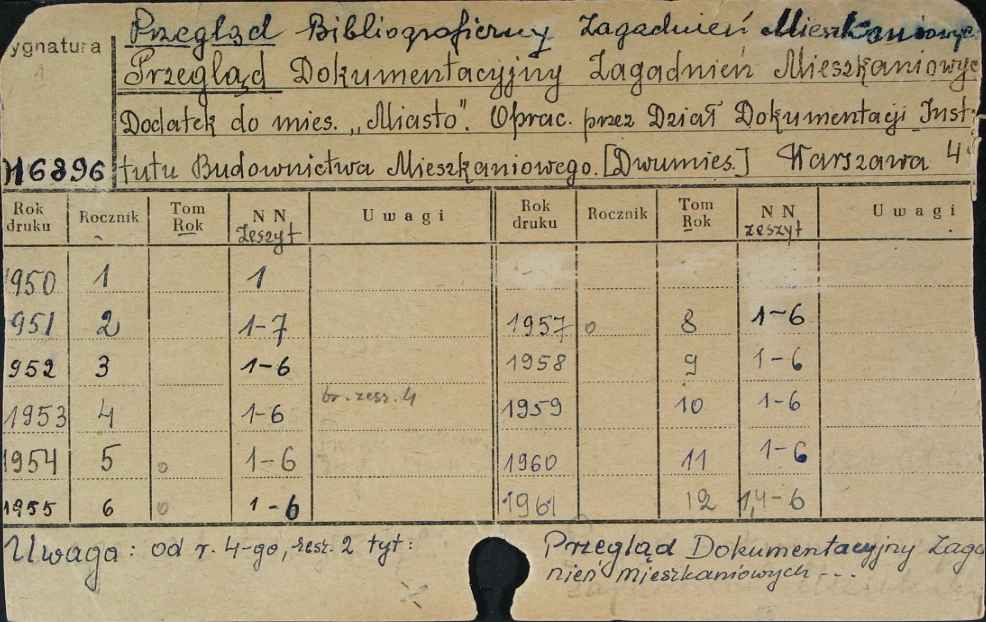 Przegląd Bibliograficzny Zagadnień Mieszkaniowyc
ygnatura
Przegląd Dokumentacyjny Zagadnień Mieszkaniowyc
Dodatek do mies. „Miasto”. Oprac. przez Dział Dokumentacji Inst
H6896 tutu Budownictwa Mieszkaniowego. [Dwumies.] Warszawa 4°
Rok druku Rocznik Tom Rok NN zeszyt Uwagi Rok druku Rocznik Tom Rok NN zeszyt Uwagi
1950 1 1
951 2 1-7 1957 o 8 1-6
952 3 1-6 1958 9 1-6
1953 4 1-6 br. zesz. 4 1959 10 1-6
1954 5 o 1-6 1960 11 1-6
1955 6 o 1-6 1961 12 1,4-6
Uwaga: od r. 4-go, zesz. 2 tyt: Przegląd Dokumentacyjny Zaga
nień mieszkaniowych...